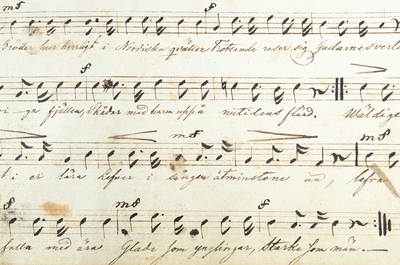 mf f
Bröder, hur herrligt i Nordiska qvällen Trotsande reser sig Gudarnes
f
ga fjällen, Skådar med harm uppå nutidens flärd. Wäldige
mf
i er lära Lefver i sången åtminstone än, lefva
f mf f
falla med ära Glade som ynglingar, Starke som män.